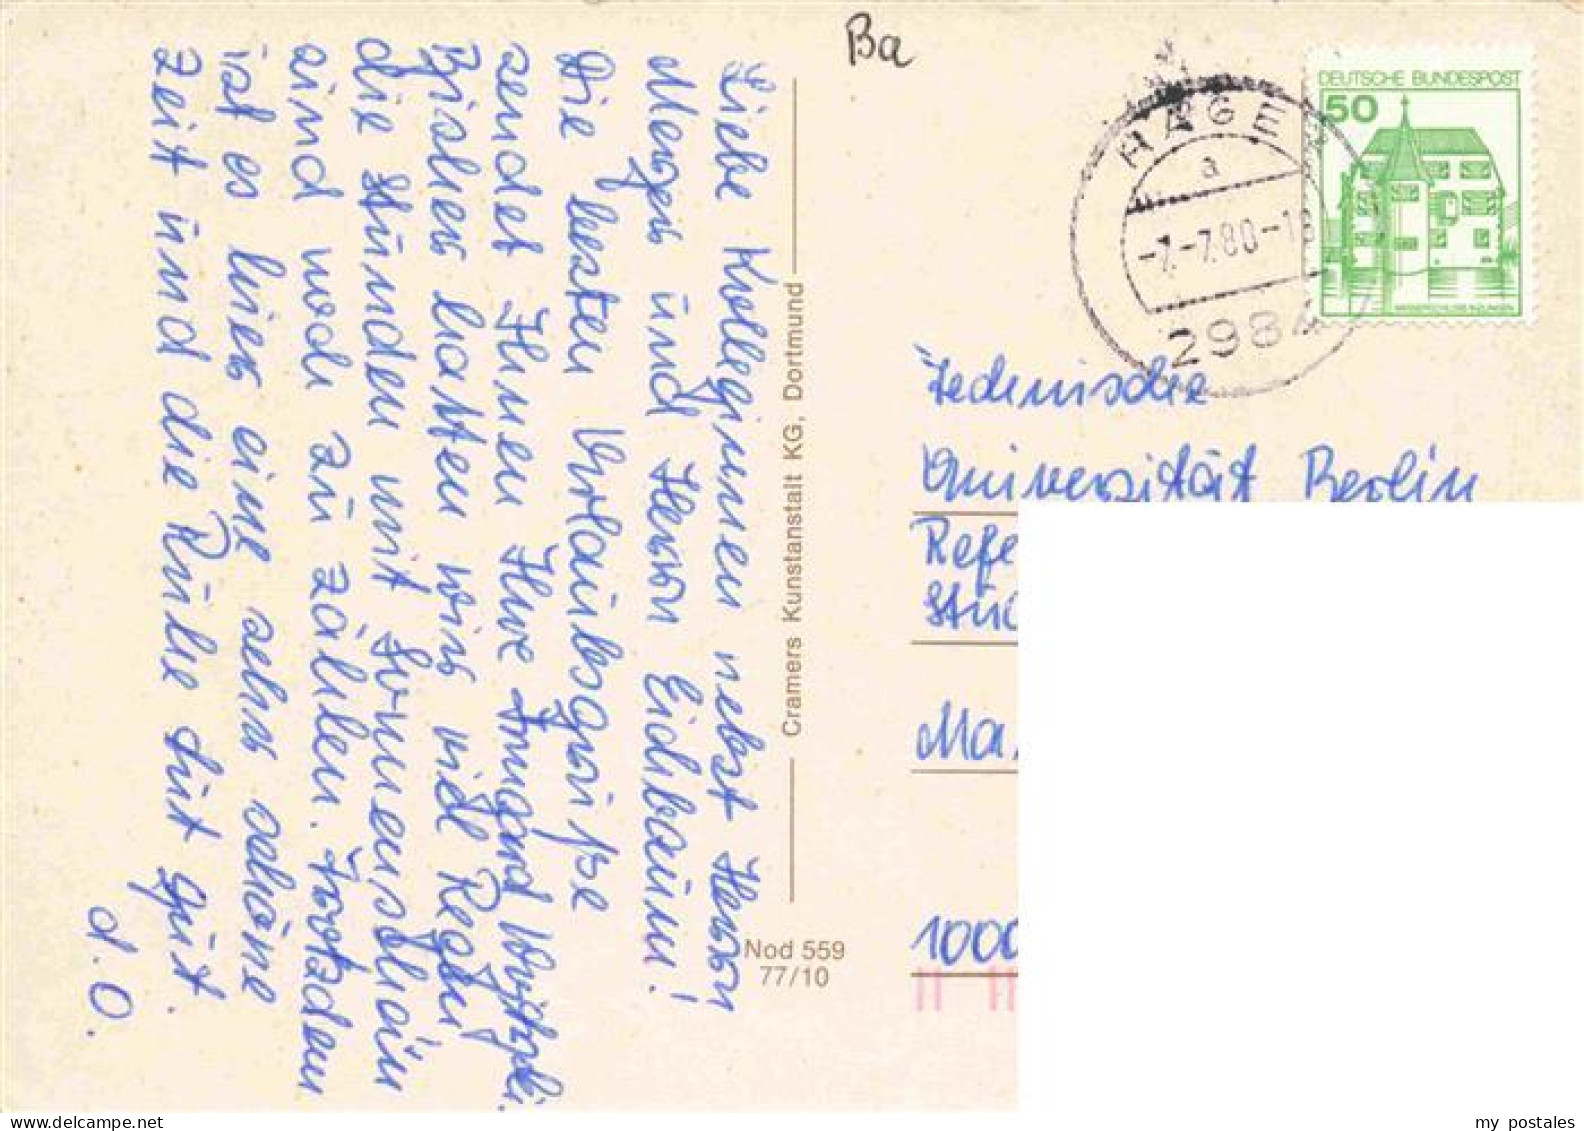 Ba
Liebe Kolleginnen nebst Herrn
und Herrn Eichbaum!
Die besten Urlaubsgrüße
sendet Ihnen Ihre Irmgard
Bisher hatten wir viel Regen
die Stunden mit Sonnenschein
sind noch zu zählen. Trotzdem
ist es hier eine sehr schöne
Zeit und die Ruhe tut gut.
d. O.
Cramers Kunstanstalt KG, Dortmund
Nod 559
77/10
DEUTSCHE BUNDESPOST
50
HAGE
a
-7.-7.80-18
2984
Technische
Universität Berlin
Refe
Stu
Ma
1000
www.delcampe.net
my postales